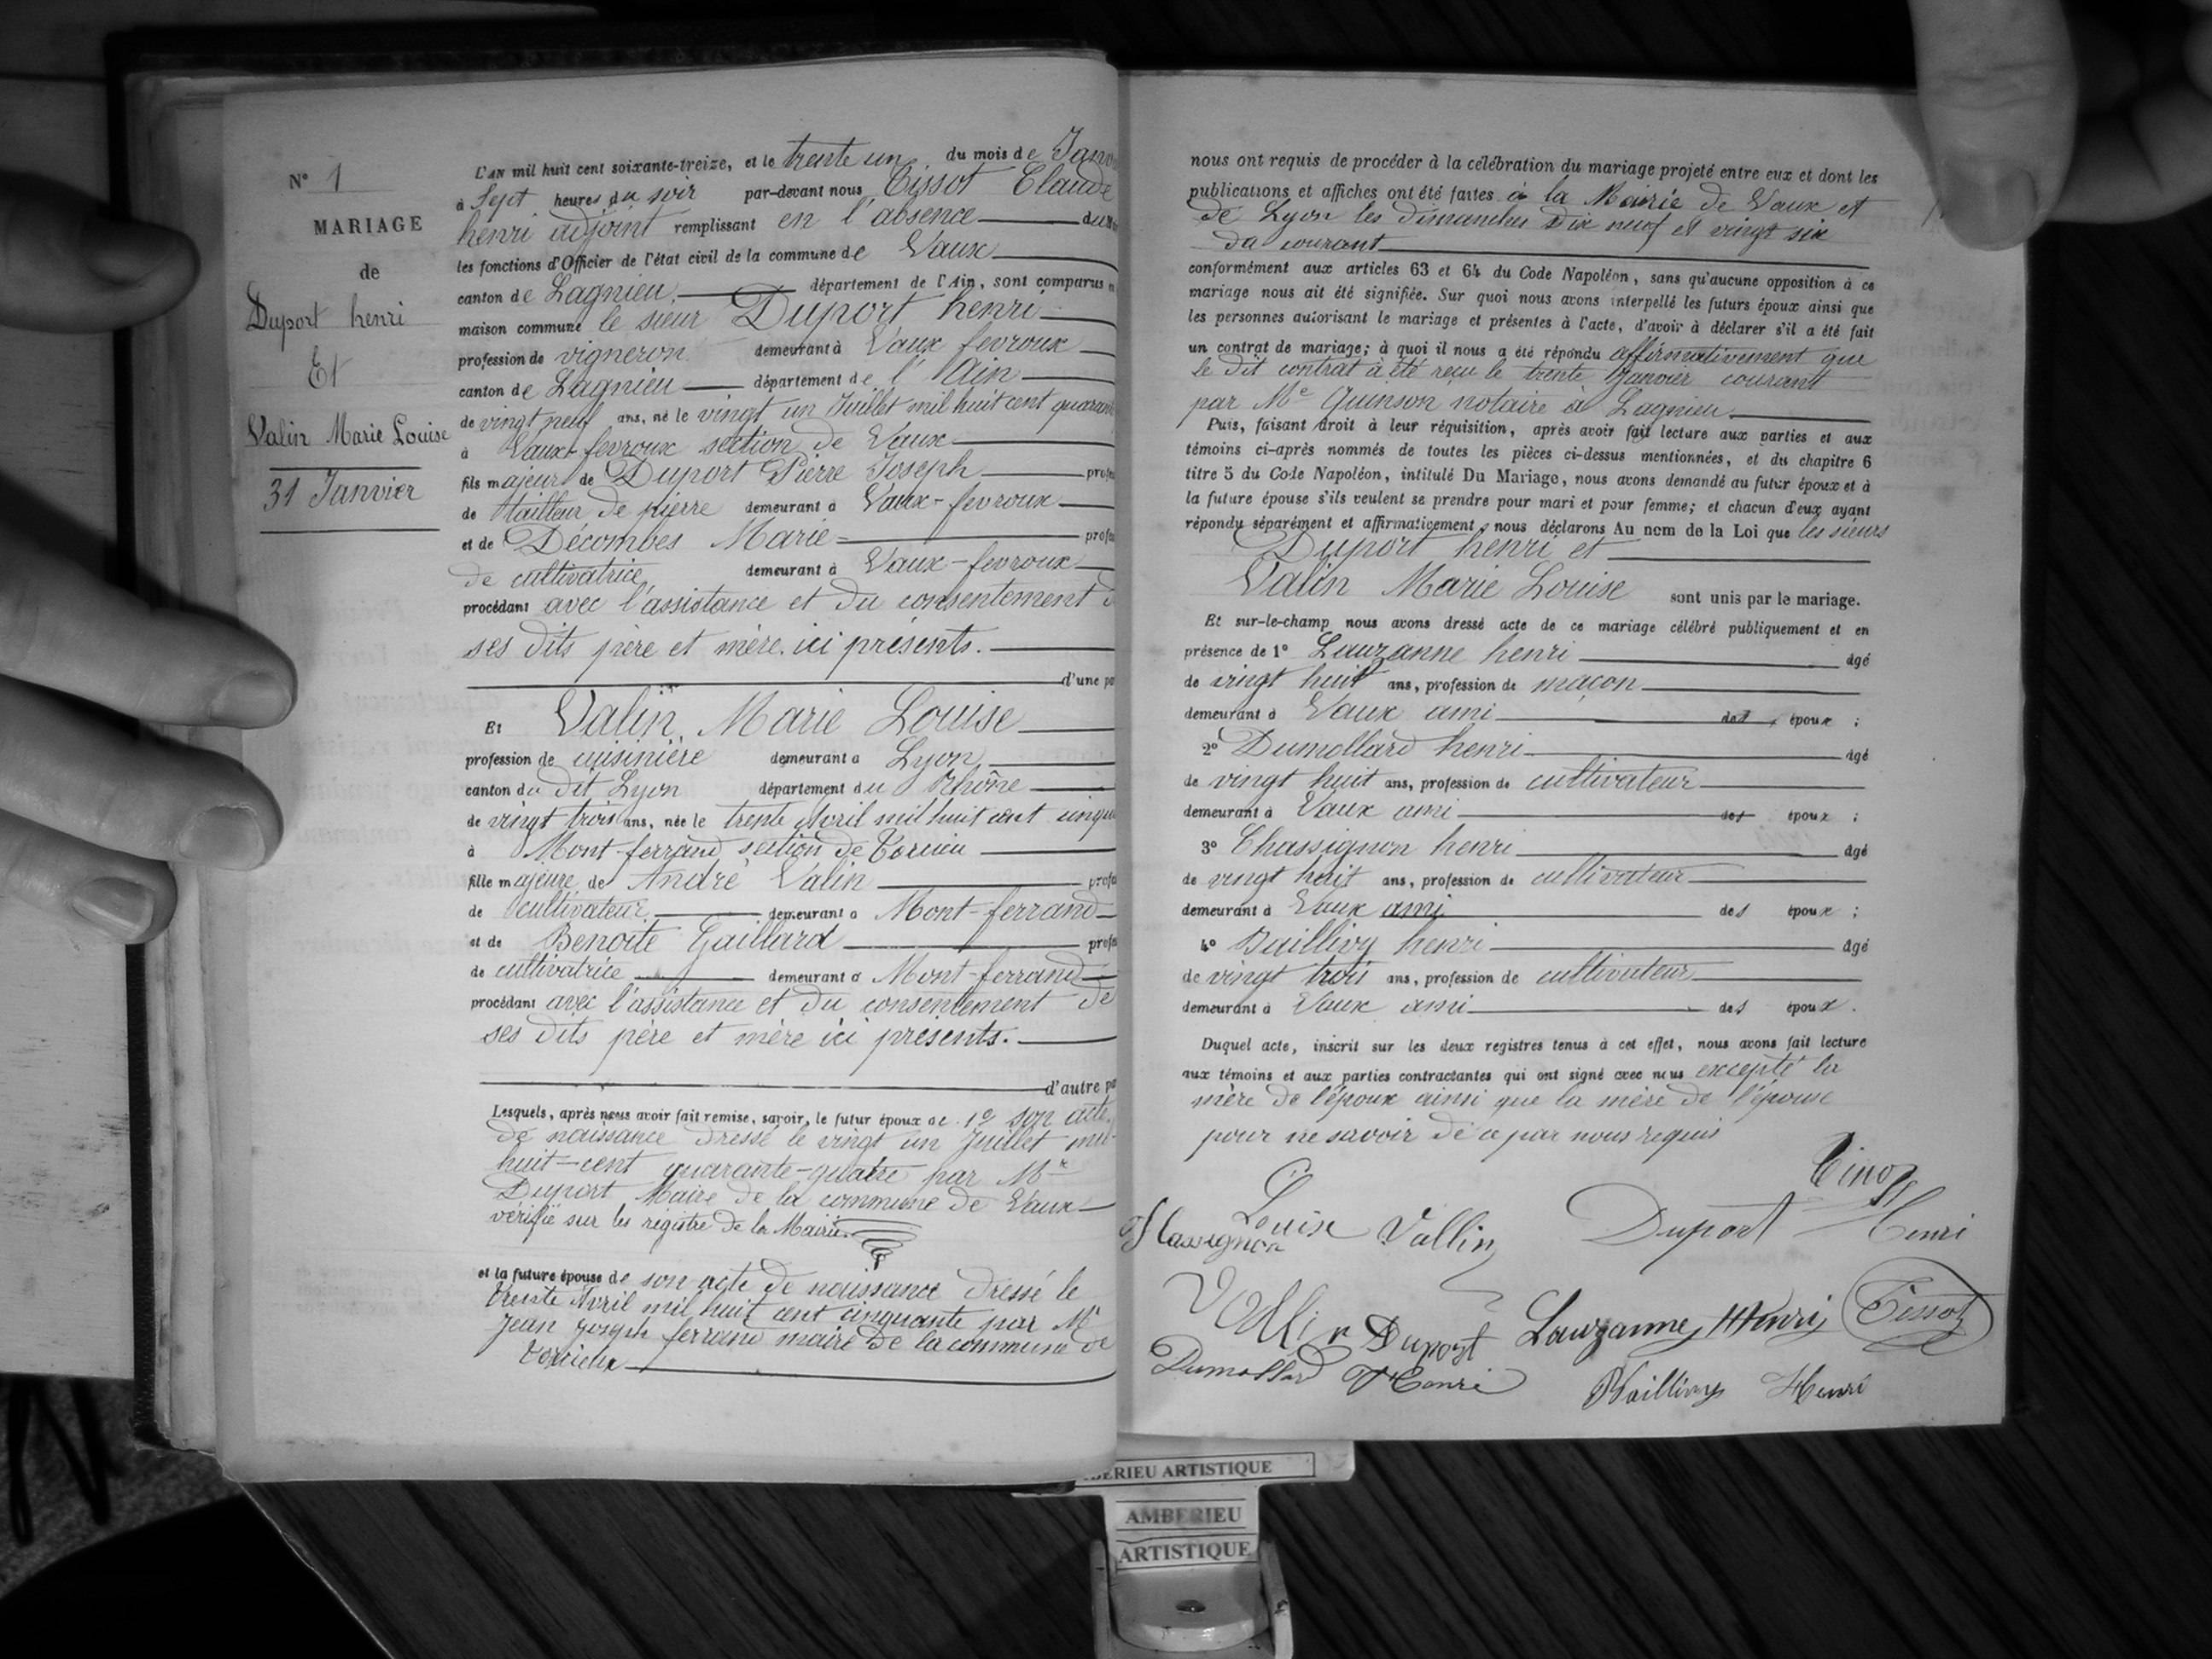 N° 1
MARIAGE
de
Duport henri
Et
Valin Marie Louise
31 Janvier
L'AN mil huit cent soixante-treize, et le trente un du mois de Janv
à Sept heures du soir par-devant nous Tissot Claude
henri adjoint remplissant en l'absence du
les fonctions d'Officier de l'état civil de la commune de Vaux
canton de Lagnieu, département de l'Ain, sont comparus
maison commune le sieur Duport henri
profession de vigneron demeurant à Vaux fevroux
canton de Lagnieu département de l'Ain
de vingt neuf ans, né le vingt un Juillet mil huit cent quaran
à Vaux fevroux section de Vaux
fils majeur de Duport Pierre Joseph profe
de tailleur de pierre demeurant à Vaux-fevroux
et de Décombes Marie profe
de cultivatrice demeurant à Vaux-fevroux
procédant avec l'assistance et du consentement d
ses dits père et mère ici présents.
d'une pa
Et Valin, Marie Louise
profession de cuisinière demeurant à Lyon,
canton du dit Lyon département du Rhône
de vingt trois ans, née le trente Avril mil huit cent cinqua
à Mont-ferrand section de Torcieu
fille majeure de André Valin profe
de cultivateur demeurant à Mont-ferrand
et de Benoite Gaillard profe
de cultivatrice demeurant à Mont-ferrand
procédant avec l'assistance et du consentement de
ses dits père et mère ici présents.
d'autre pa
Lesquels, après nous avoir fait remise, savoir, le futur époux de 1° son acte
de naissance dressé le vingt un Juillet mil-
huit-cent quarante-quatre par Mr
Duport Maire de la commune de Vaux
vérifié sur les registre de la Mairie
et la future épouse de son acte de naissance dressé le
trente Avril mil huit cent cinquante par Mr
Jean Joseph ferrand maire de la commune de
Torcieu
nous ont requis de procéder à la célébration du mariage projeté entre eux et dont les
publications et affiches ont été faites à la Mairie de Vaux et
de Lyon les dimanches dix neuf et vingt six
du courant
conformément aux articles 63 et 64 du Code Napoléon, sans qu'aucune opposition à ce
mariage nous ait été signifiée. Sur quoi nous avons interpellé les futurs époux ainsi que
les personnes autorisant le mariage et présentes à l'acte, d'avoir à déclarer s'il a été fait
un contrat de mariage; à quoi il nous a été répondu affirmativement que
le dit contrat à été reçu le trente Janvier courant
par Me Quinson notaire à Lagnieu
Puis, faisant droit à leur réquisition, après avoir fait lecture aux parties et aux
témoins ci-après nommés de toutes les pièces ci-dessus mentionnées, et du chapitre 6
titre 5 du Code Napoléon, intitulé Du Mariage, nous avons demandé au futur époux et à
la future épouse s'ils veulent se prendre pour mari et pour femme; et chacun d'eux ayant
répondu séparément et affirmativement, nous déclarons Au nom de la Loi que les sieurs
Duport henri et
Valin Marie Louise sont unis par le mariage.
Et sur-le-champ nous avons dressé acte de ce mariage célébré publiquement et en
présence de 1° Lauzanne henri âgé
de vingt huit ans, profession de maçon
demeurant à Vaux ami des époux ;
2° Dumollard henri âgé
de vingt huit ans, profession de cultivateur
demeurant à Vaux ami des époux ;
3° Chassignon henri âgé
de vingt huit ans, profession de cultivateur
demeurant à Vaux ami des époux ;
4° Baillivy henri âgé
de vingt trois ans, profession de cultivateur
demeurant à Vaux ami des époux.
Duquel acte, inscrit sur les deux registres tenus à cet effet, nous avons fait lecture
aux témoins et aux parties contractantes qui ont signé avec nous excepté la
mère de l'époux ainsi que la mère de l'épouse
pour ne savoir de ce par nous requis
Louise Vallin Duport Henri
Chassignon
Vallin Duport Lauzanne Henri Tissot
Dumollard Henri Baillivy Henri
BERIEU ARTISTIQUE
AMBERIEU
ARTISTIQUE